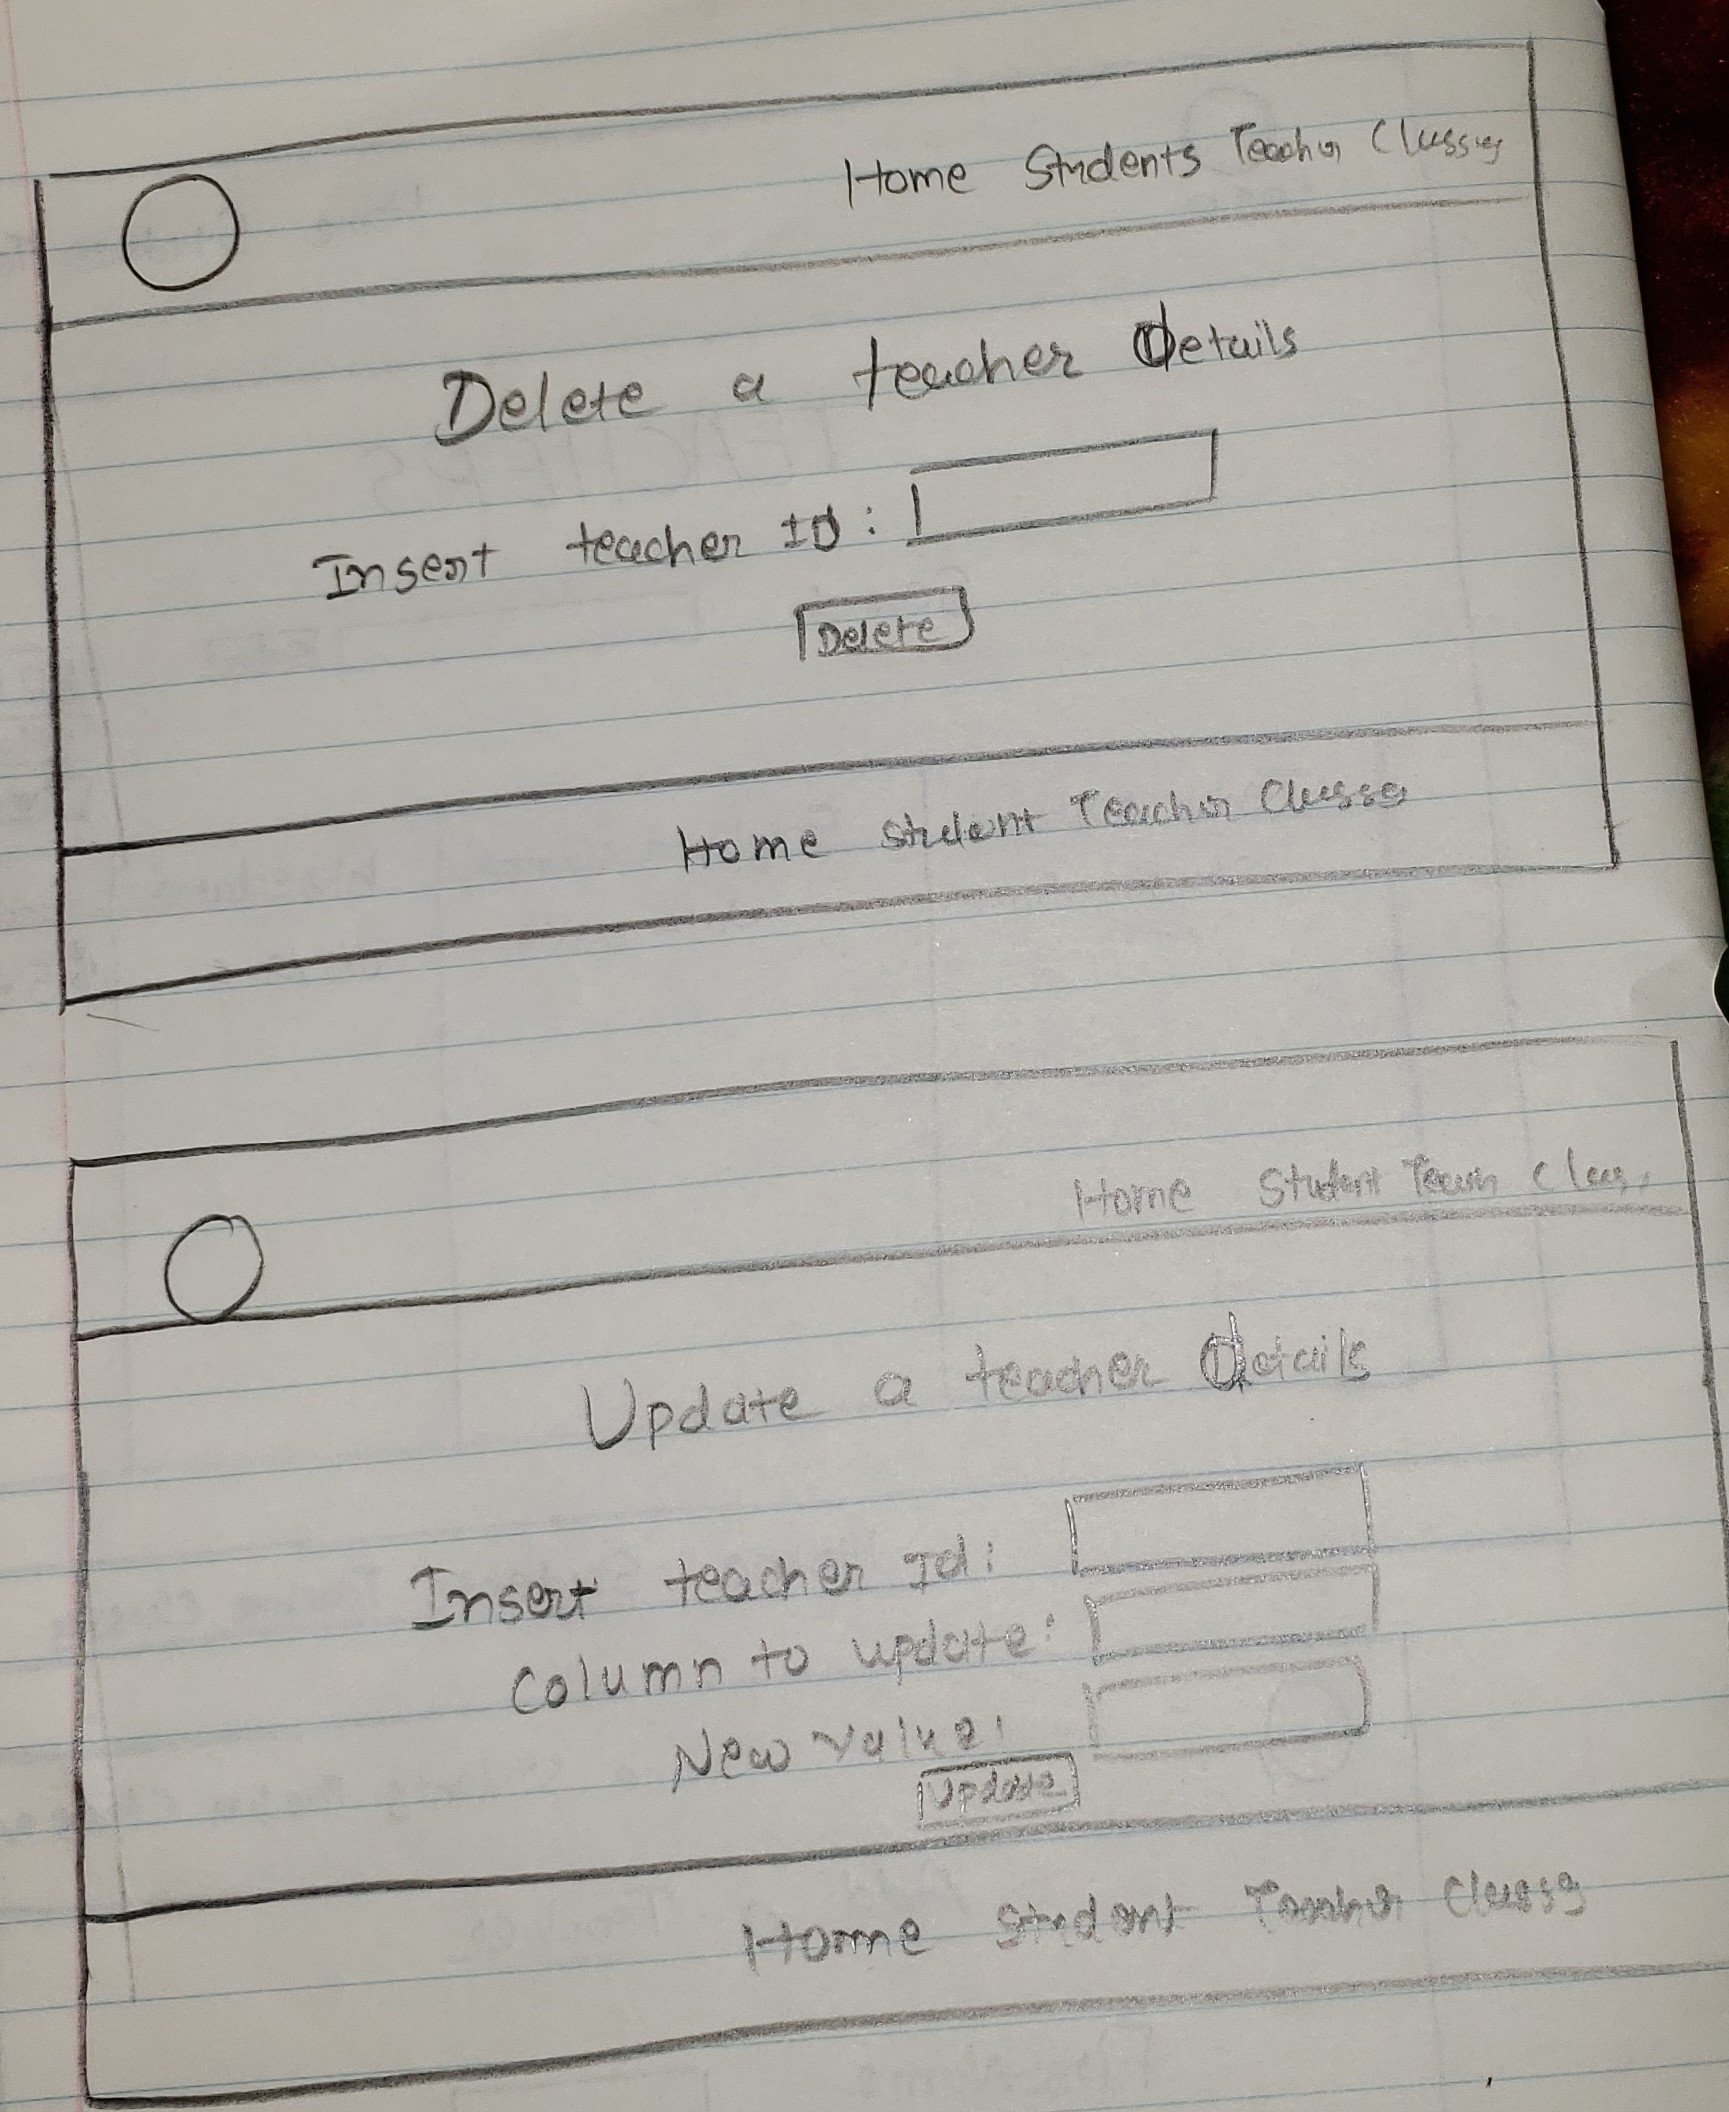 Home Students Teacher Classes
Delete a teacher Details
Insert teacher ID:
Delete
Home Student Teacher Classes
Home Student
Update a teacher Details
Insert teacher Id:
Column to update:
New value:
Update
Home Student Teacher Classes